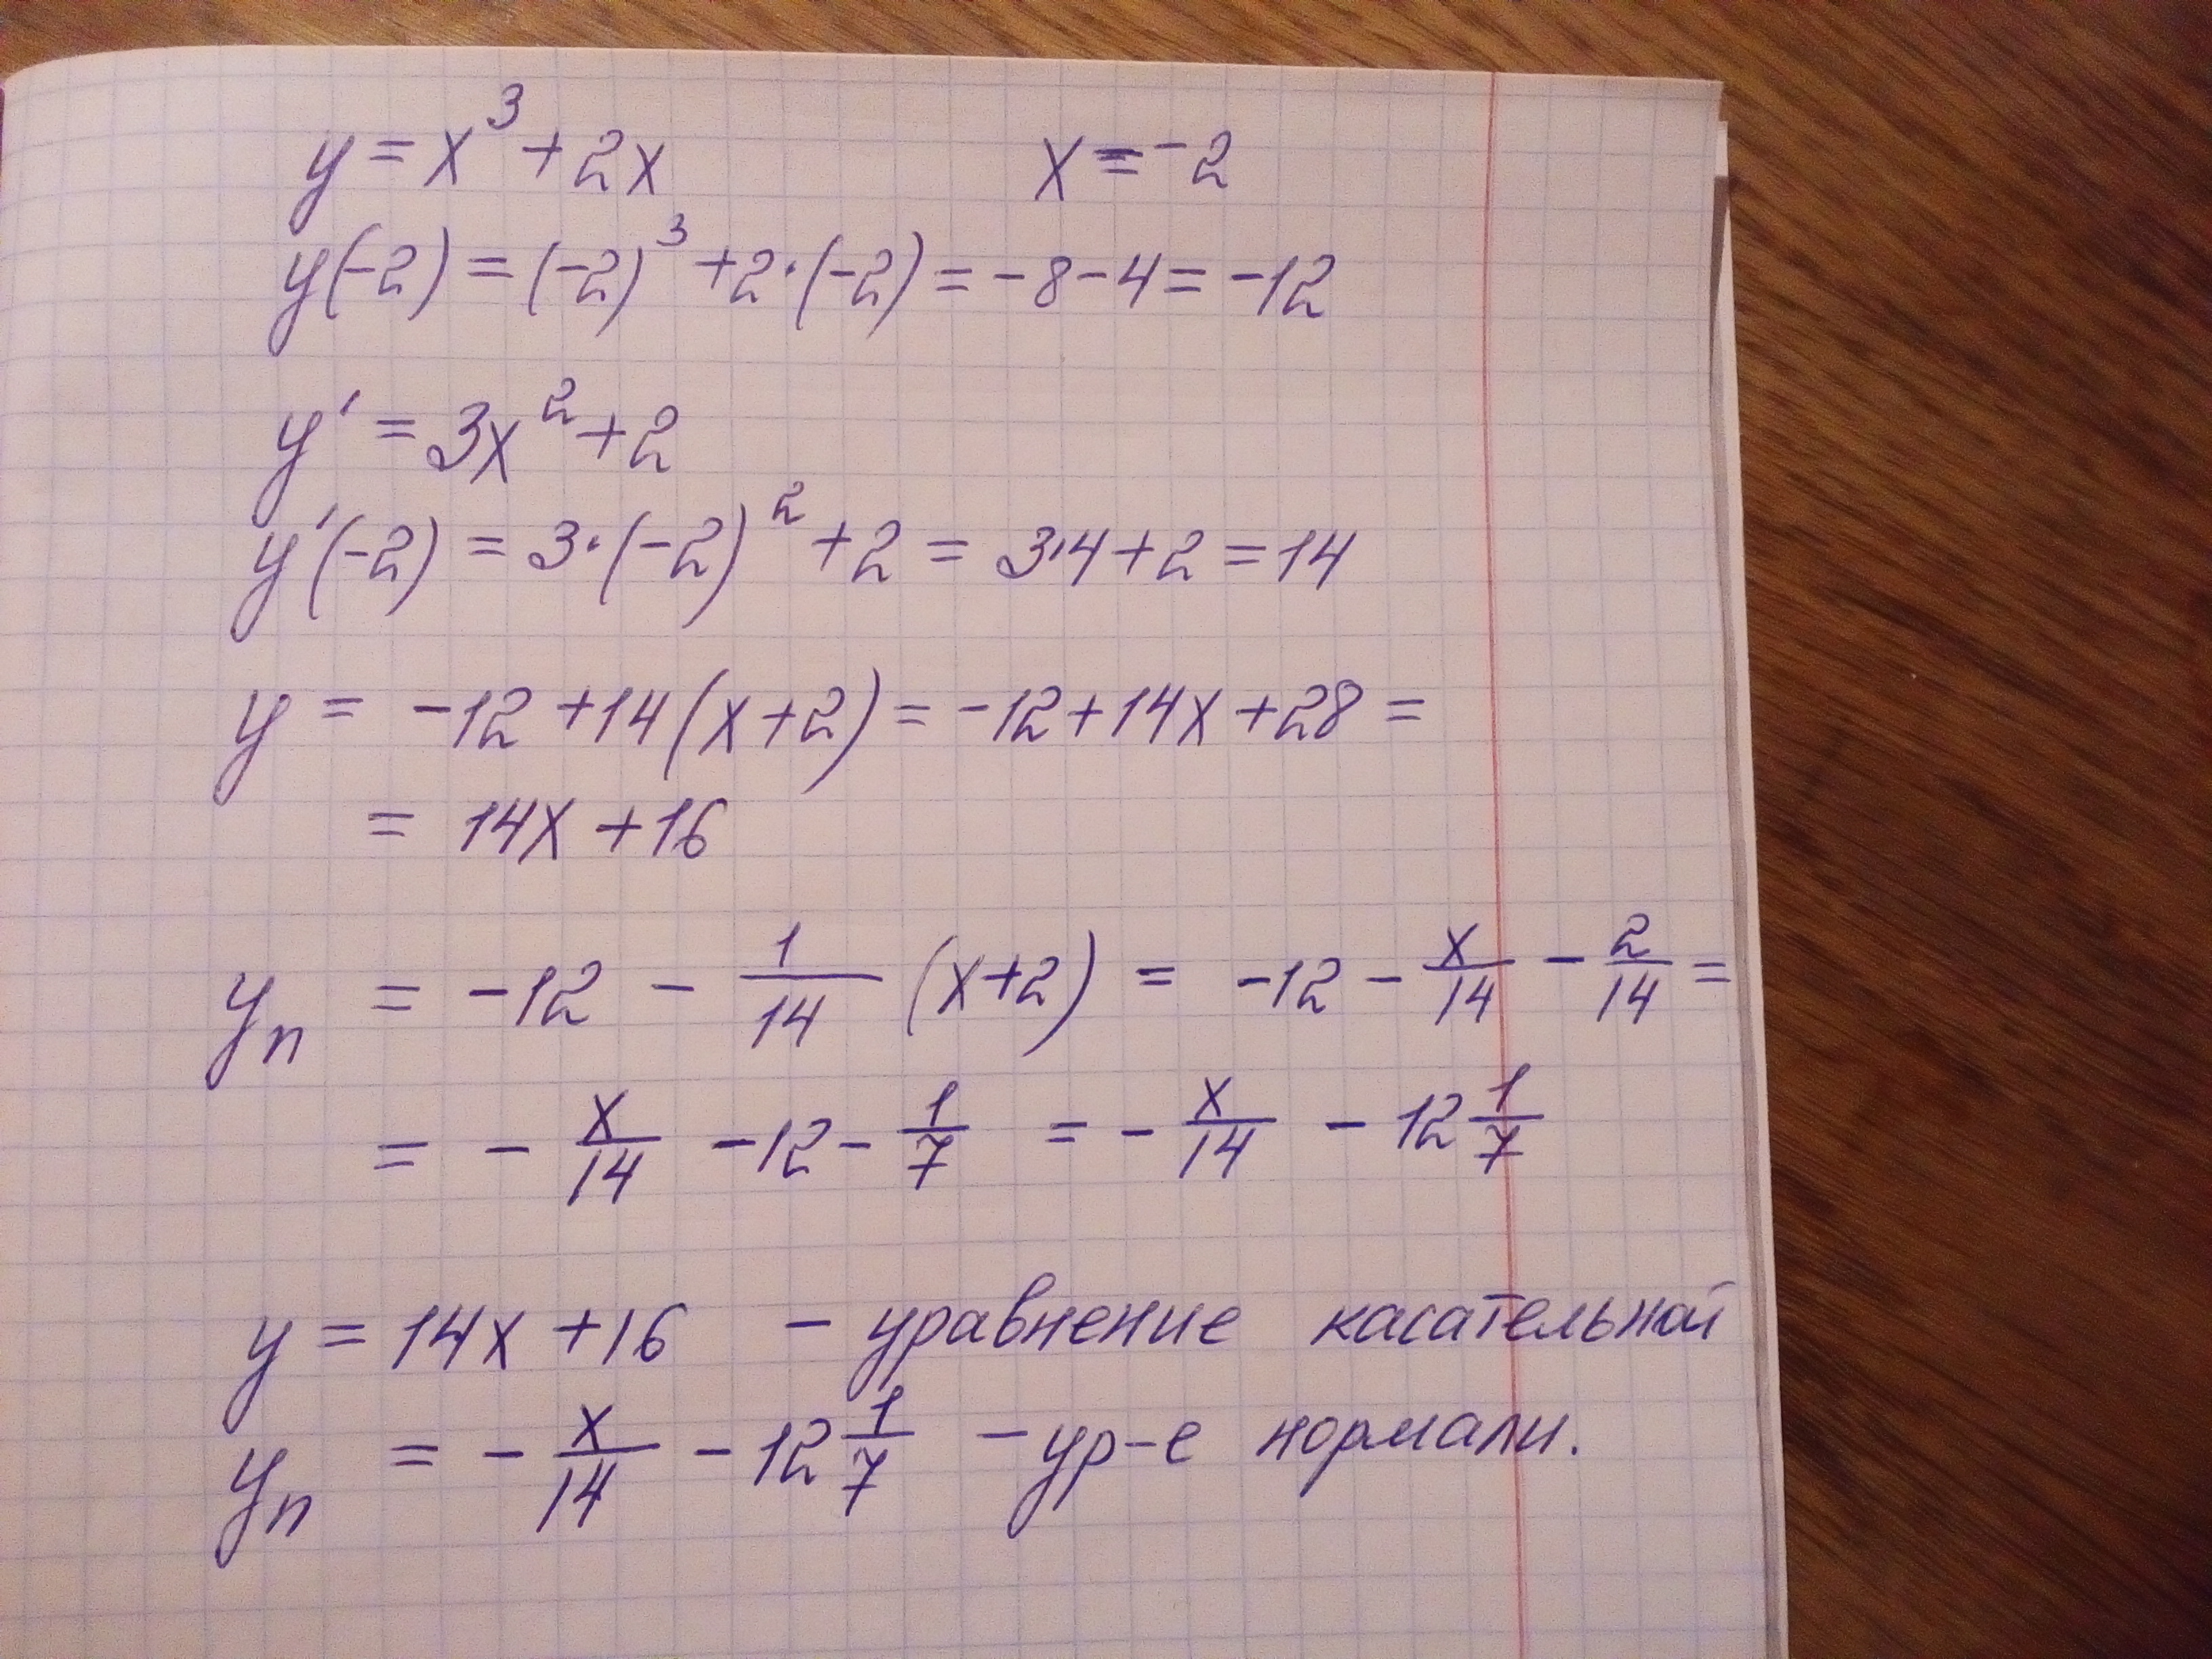 y = x³ + 2x x = -2
y(-2) = (-2)³ + 2·(-2) = -8 - 4 = -12
y' = 3x² + 2
y'(-2) = 3·(-2)² + 2 = 3·4 + 2 = 14
y = -12 + 14(x+2) = -12 + 14x + 28 =
= 14x + 16
yₙ = -12 - 1/14 (x+2) = -12 - x/14 - 2/14 =
= - x/14 - 12 - 1/7 = - x/14 - 12 1/7
y = 14x + 16 - уравнение касательной
yₙ = - x/14 - 12 1/7 - ур-е нормали.